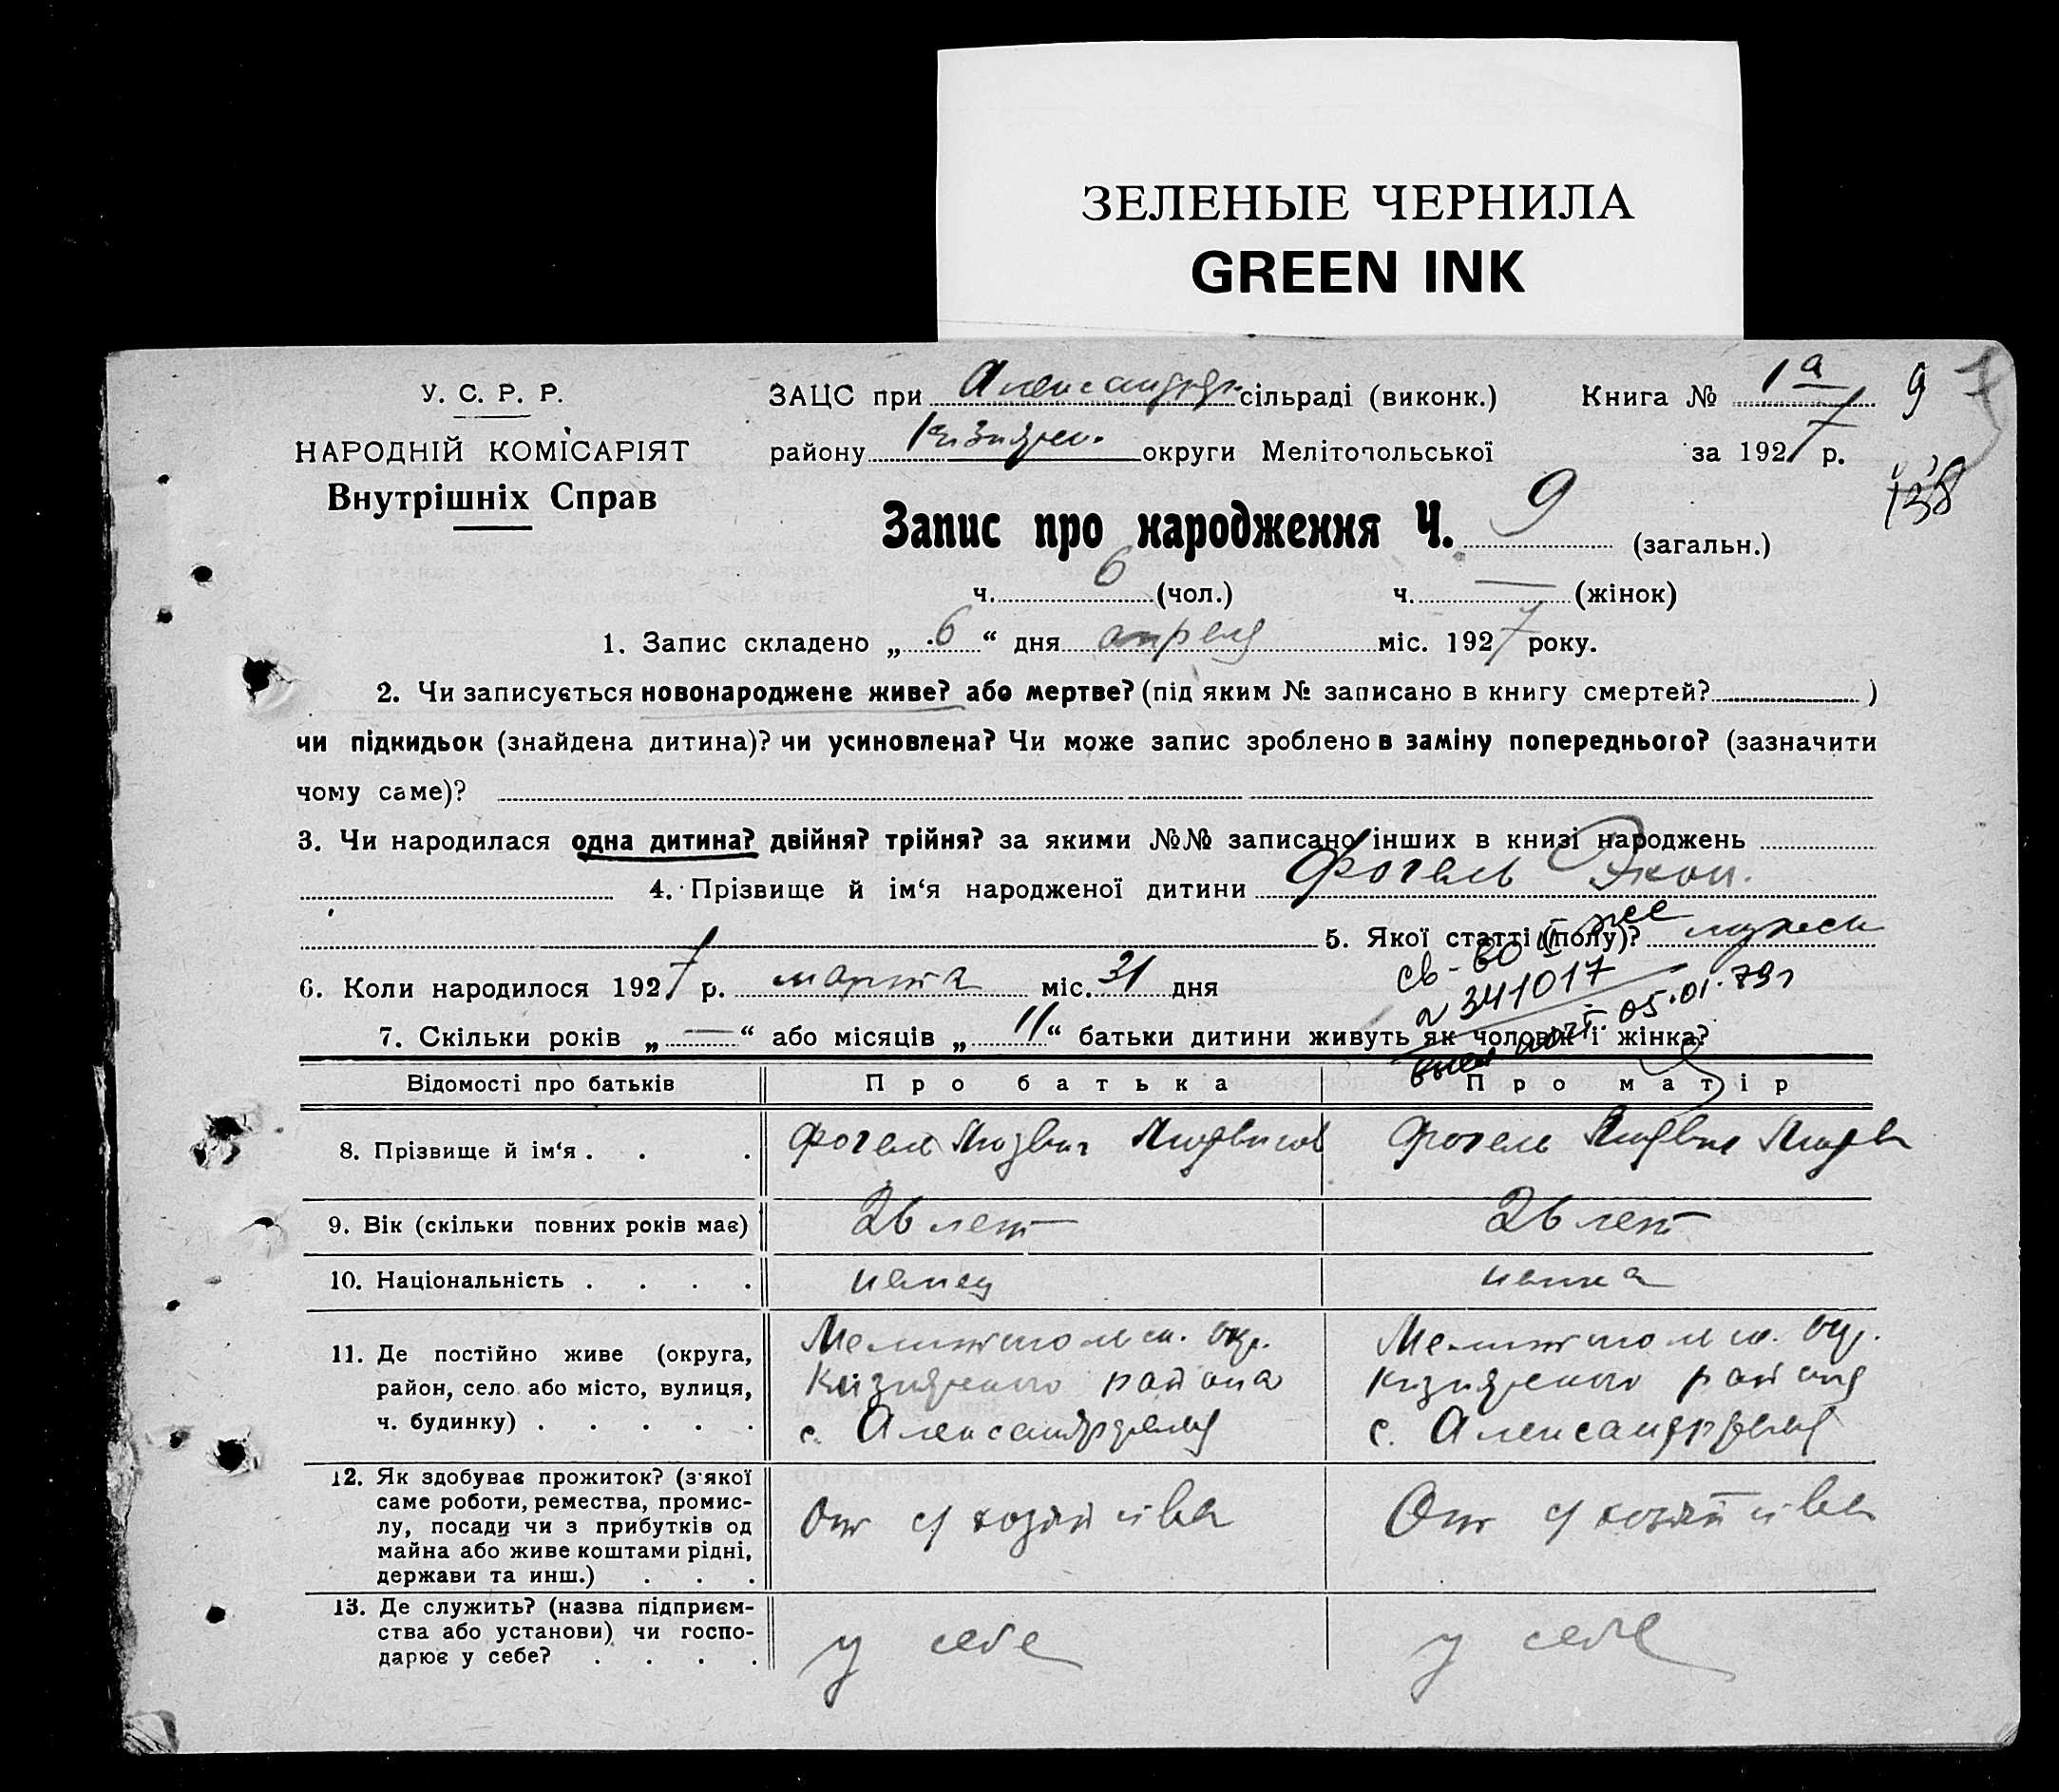 ЗЕЛЕНЫЕ ЧЕРНИЛА
GREEN INK
У. С. Р. Р.
НАРОДНІЙ КОМІСАРІЯТ
Внутрішніх Справ
ЗАЦС при Александр. сільраді (виконк.)
району округи Мелітопольської
Книга № 1а 9
за 1927 р.
138
Запис про народження Ч. 9 (загальн.)
ч. 6 (чол.) ч. — (жінок)
1. Запис складено „ 6 “ дня апреля міс. 1927 року.
2. Чи записується новонароджене живе? або мертве? (під яким № записано в книгу смертей? )
чи підкидьок (знайдена дитина)? чи усиновлена? Чи може запис зроблено в заміну попереднього? (зазначити
чому саме)?
3. Чи народилася одна дитина? двійня? трійня? за якими №№ записано інших в книзі народжень
4. Прізвище й ім‘я народженої дитини Фогель
5. Якої статті (полу)? мужск
6. Коли народилося 1927 р. марта міс. 31 дня
св-во II
341017
05.01.79г
7. Скільки років „ — “ або місяців „ 11 “ батьки дитини живуть як чоловік і жінка?
Відомості про батьків Про батька Про матір
8. Прізвище й ім‘я . . . Фогель Людвиг Фогель
9. Вік (скільки повних років має) 26 лет 26 лет
10. Національність . . . . немец немка
11. Де постійно живе (округа,
район, село або місто, вулиця,
ч. будинку) . . . . .
Мелитопольск. окр.
района
с. Александрфельд
Мелитопольск. окр.
района
с. Александрфельд
12. Як здобуває прожиток? (з‘якої
саме роботи, ремества, промис-
лу, посади чи з прибутків од
майна або живе коштами рідні,
держави та инш.) . . .
От с/хозяйства
От с/хозяйства
13. Де служить? (назва підприєм-
ства або установи) чи госпо-
дарює у себе? . . . .
у себе
у себе